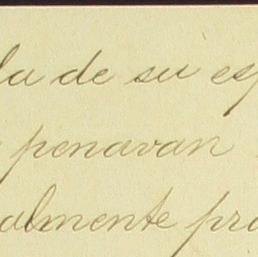 la de su esp
penavan
almente pro